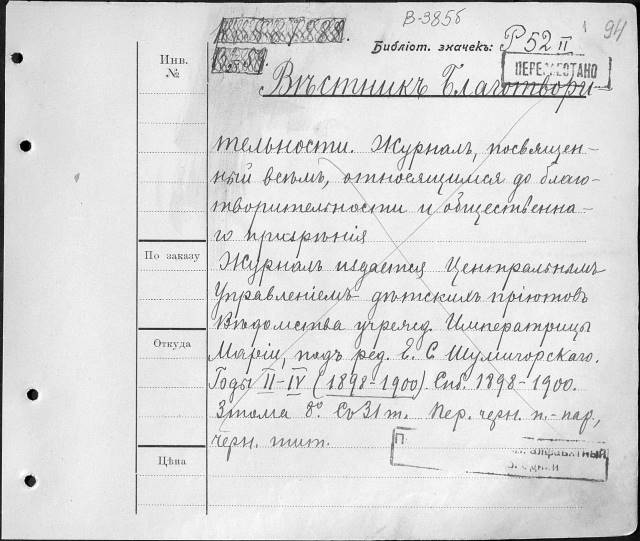 В-385б
Инв. №
Библіот. значекъ: Р 52 II
94
Вѣстникъ Благотвори
тельности. Журналъ, посвящен-
ный всѣмъ, относящимся до благо-
творительности и общественна-
го призрѣнія
По заказу
Журналъ издается Центральнымъ
Управленіемъ дѣтскихъ пріютовъ
Вѣдомства учрежд. Императрицы
Откуда
Маріи, подъ ред. Е. С Шумигорскаго.
Годы II-IV (1898-1900). Спб. 1898-1900.
3 тома 8°. Съ 31 т. Пер. черн. п.-пар,
черн. тит.
Цѣна